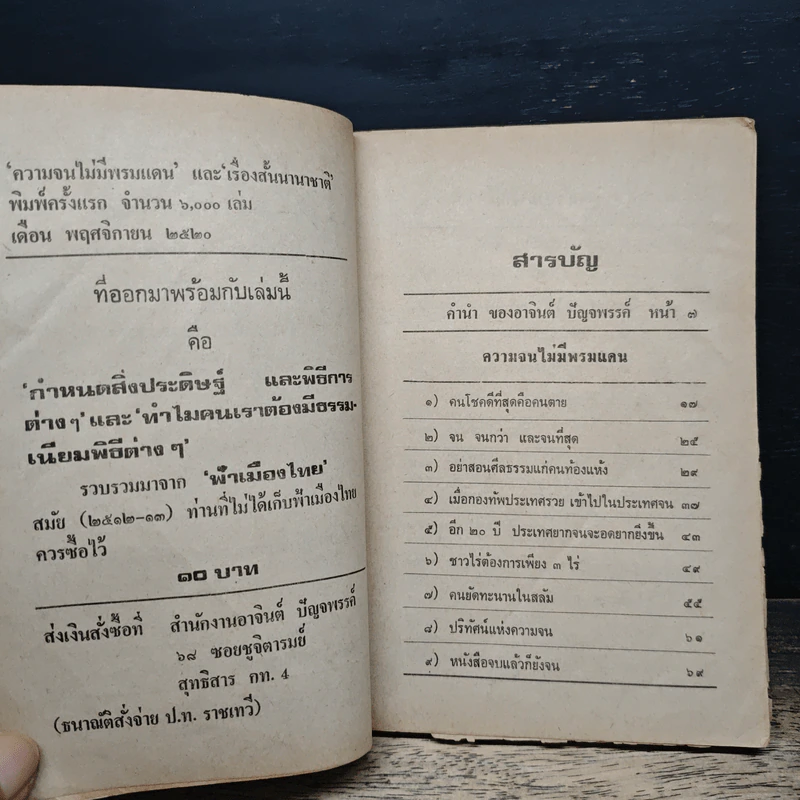 'ความจนไม่มีพรมแดน' และ 'เรื่องสั้นนานาชาติ'
พิมพ์ครั้งแรก จำนวน ๖,๐๐๐ เล่ม
เดือน พฤศจิกายน ๒๕๒๐
ที่ออกมาพร้อมกับเล่มนี้
คือ
'กำหนดสิ่งประดิษฐ์ และพิธีการ
ต่าง ๆ' และ 'ทำไมคนเราต้องมีธรรม-
เนียมพิธีต่าง ๆ'
รวบรวมมาจาก 'ฟ้าเมืองไทย'
สมัย (๒๕๑๒-๑๓) ท่านที่ไม่ได้เก็บฟ้าเมืองไทย
ควรซื้อไว้
๑๐ บาท
ส่งเงินสั่งซื้อที่ สำนักงานอาจินต์ ปัญจพรรค์
๖๘ ซอยชูจิตารมย์
สุทธิสาร กท. 4
(ธนาณัติสั่งจ่าย ป.ท. ราชเทวี)
สารบัญ
คำนำ ของอาจินต์ ปัญจพรรค์ หน้า ๗
ความจนไม่มีพรมแดน
๑) คนโชคดีที่สุดคือคนตาย ๑๗
๒) จน จนกว่า และจนที่สุด ๒๕
๓) อย่าสอนศีลธรรมแก่คนท้องแห้ง ๒๙
๔) เมื่อกองทัพประเทศรวย เข้าไปในประเทศจน ๓๗
๕) อีก ๒๐ ปี ประเทศยากจนจะอดยากยิ่งขึ้น ๔๓
๖) ชาวไร่ต้องการเพียง ๓ ไร่ ๔๙
๗) คนยัดทะนานในสลัม ๕๕
๘) ปริทัศน์แห่งความจน ๖๑
๙) หนังสือจบแล้วก็ยังจน ๖๙